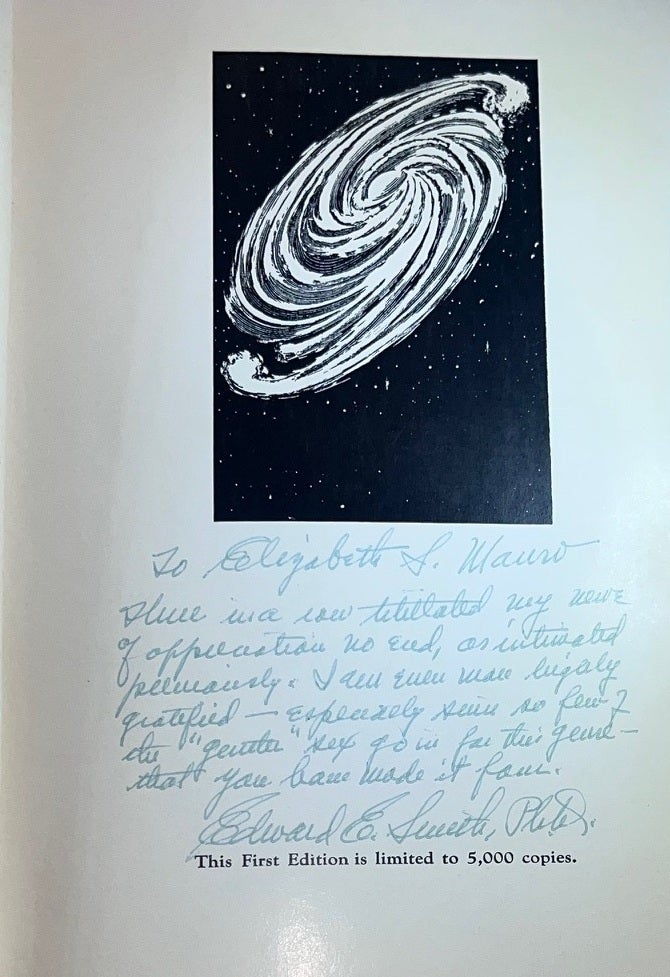 To Elizabeth S. Mauro
Three in a row titillated my nerve
of appreciation no end, as intimated
previously. I am even more hugely
gratified — especially since so few of
the "gentler" sex go in for this genre —
that you have made it four.
Edward E. Smith, Ph.D.
This First Edition is limited to 5,000 copies.